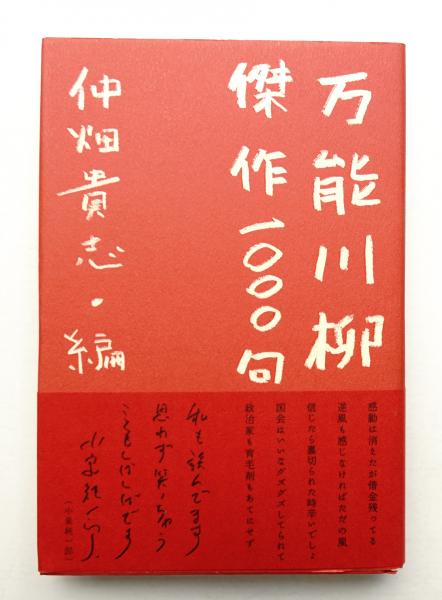 万能川柳
傑作一〇〇〇句
仲畑貴志・編
感動は消えたが借金残ってる
逆風も感じなければただの風
信じたら裏切られた時辛いでしょ
国会はいいなグズグズしてられて
政治家も育毛剤もあてにせず
私も読んでます
思わず笑っちゃう
こともしばしばです
小泉純一郎
(小泉純一郎)